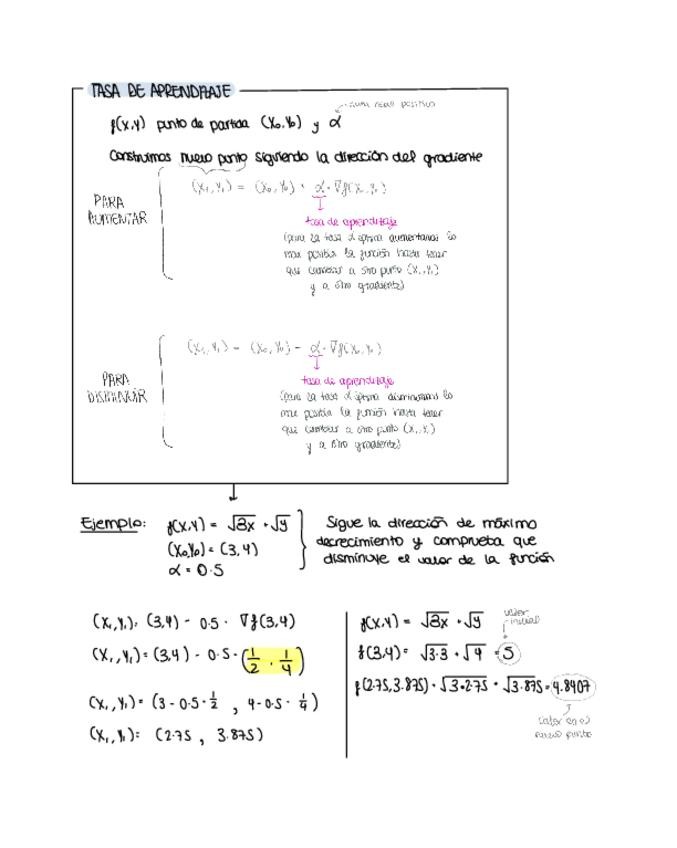 TASA DE APRENDIZAJE
núm real positivo
f(x,y) punto de partida (x₀,y₀) y α
Construimos nuevo punto siguiendo la dirección del gradiente
PARA AUMENTAR
(x₁,y₁) = (x₀,y₀) + α·∇f(x₀,y₀)
tasa de aprendizaje
(para la tasa α óptima aumentamos lo
más posible la función hasta tener
que cambiar a otro punto (x₁,y₁)
y a otro gradiente)
PARA DISMINUIR
(x₁,y₁) = (x₀,y₀) - α·∇f(x₀,y₀)
tasa de aprendizaje
(para la tasa α óptima disminuimos lo
más posible la función hasta tener
que cambiar a otro punto (x₁,y₁)
y a otro gradiente)
Ejemplo: f(x,y) = √3x + √y
(x₀,y₀) = (3,4)
α = 0.5
Sigue la dirección de máximo
decrecimiento y comprueba que
disminuye el valor de la función
(x₁,y₁) = (3,4) - 0.5 · ∇f(3,4)
(x₁,y₁) = (3,4) - 0.5 · (1/2 , 1/4)
(x₁,y₁) = (3 - 0.5 · 1/2 , 4 - 0.5 · 1/4)
(x₁,y₁) = (2.75 , 3.875)
f(x,y) = √3x + √y
valor inicial
f(3,4) = √3·3 + √4 = 5
f(2.75,3.875) = √3·2.75 + √3.875 = 4.8407
valor en el
nuevo punto